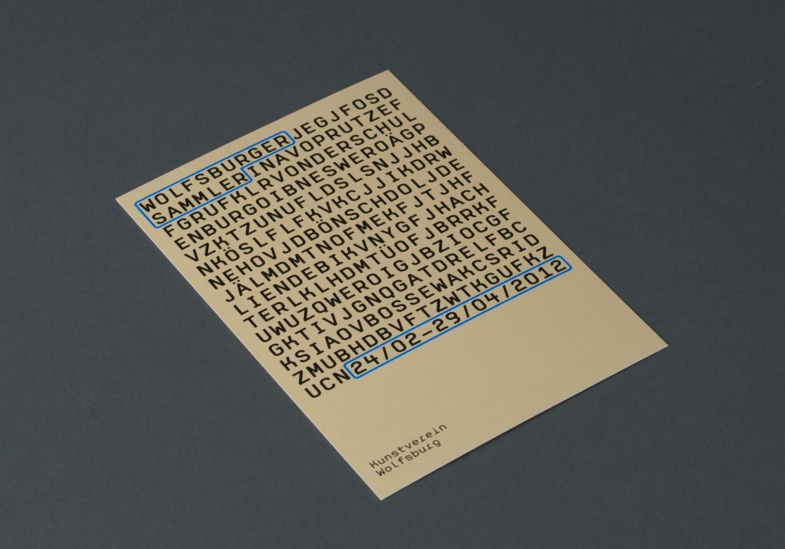 WOLFSBURGERJEGJFOSD
SAMMLERINAVOPRUTZEF
FGRUFKLRVONDERSCHUL
ENBURGOIBNESWEROÄGP
VZKTZUNUFLDSLSNJJHB
NKÖSLFLFKVKCJJIKDRW
NEHOVJDBÖNSCHDOLJDE
JÄLMDMTNOFMEKFJTJHF
LIENDEBIKVNYGFJHACH
TERLKLHDMTÜOFJBRRKF
UWUZQWERQIGJBZIOCGF
GKTIVJGNQGATDRELFBC
KSIAOVBOSSEWAKCSRID
ZMUBHDBVFTZWTKGUFKZ
UCN24/02–29/04/2012
Kunstverein
Wolfsburg